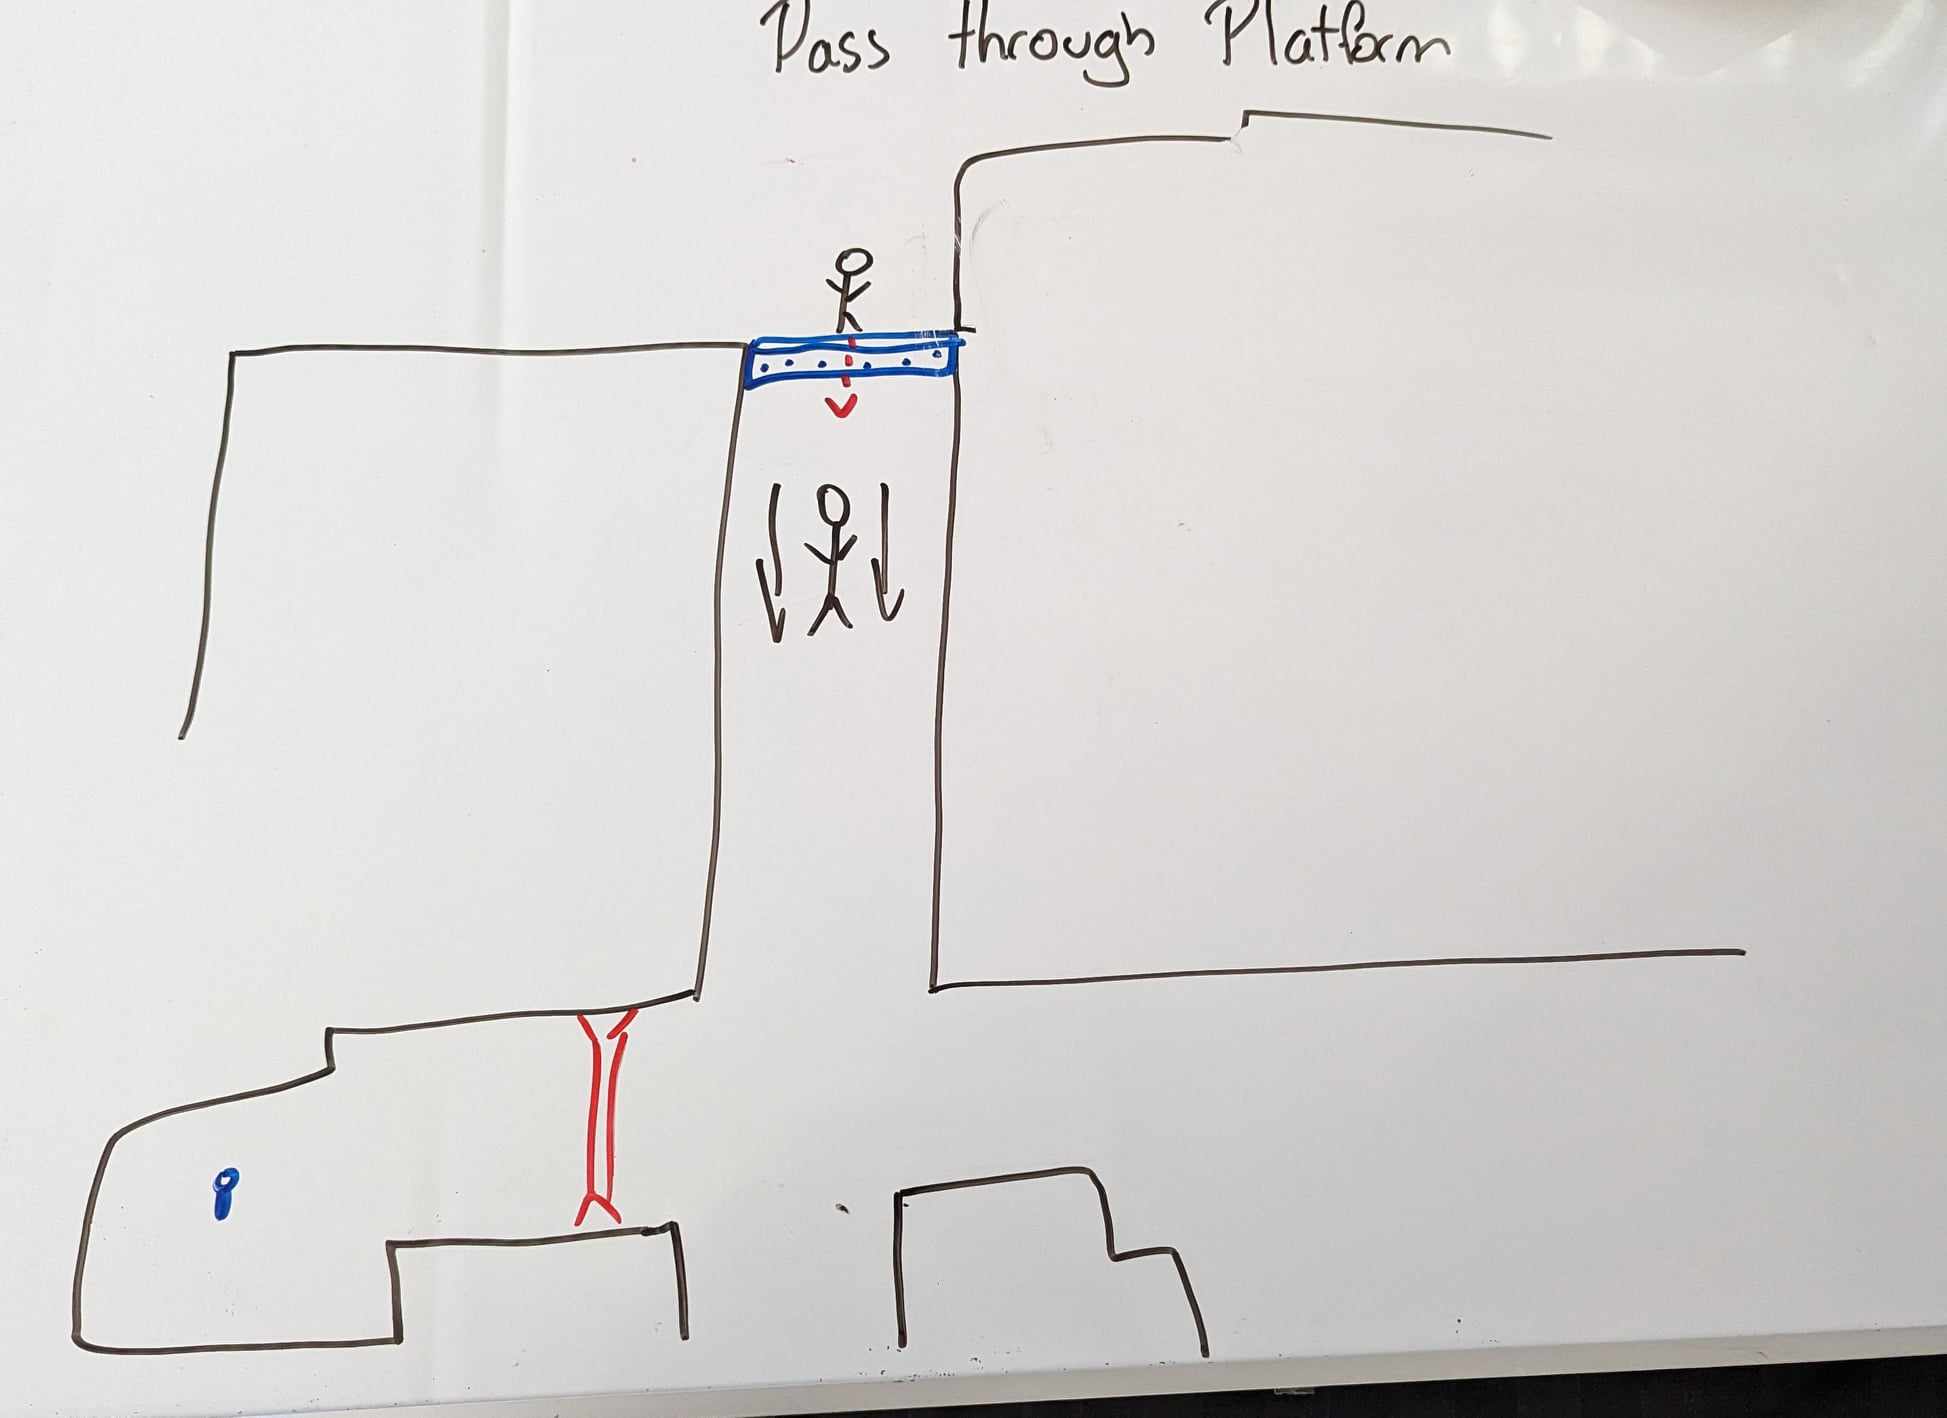 Pass through Platform